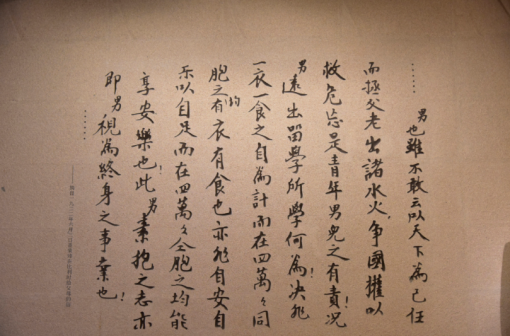 ……男也雖不敢云以天下為己任
而拯父老出諸水火，争國權以
救危亡是青年男兒之有責！况
男遠出留學所學何為！决非
一衣一食之自為計而在四萬々同
胞之均有衣有食也亦非自安自
乐以自足而在四萬々仝胞之均能
享安樂也！此男素抱之志亦
即男視為終身之事業也！
……